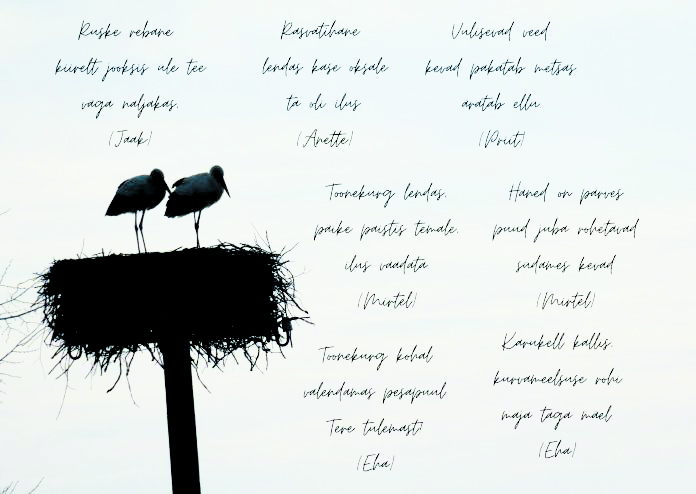 Ruske rebane
kiirelt jooksis ule tee
vaga naljakas.
(Jaak)
Rasvatihane
lendas kase oksale
ta oli ilus
(Anette)
Vulisevad veed
kevad pakatab metsas
aratab ellu.
(Priit)
Toonekurg lendas.
paike paistis temale.
ilus vaadata
(Mirtel)
Haned on parves
puud juba rohetavad
sudames kevad
(Mirtel)
Toonekurg kohal
valendamas pesapuul
Tere tulemast!
(Eha)
Karukell kallis.
kurvameelsuse rohi
maja taga mael
(Eha)